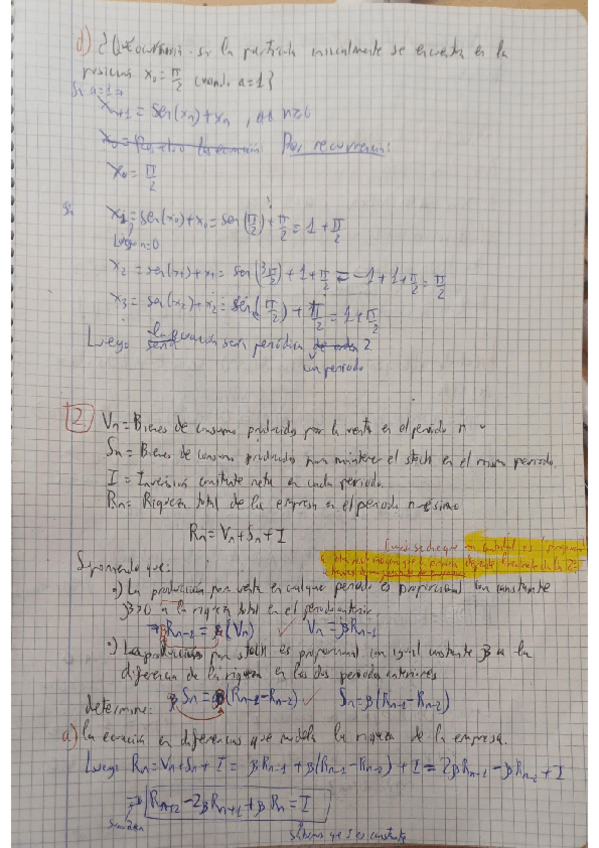 d) ¿Qué ocurriría si la partícula inicialmente se encuentra en la
posición x₀ = π/2 cuando a=1?
Si a=1 ⇒
xₙ₊₁ = sen(xₙ) + xₙ , n≥0
Por recurrencia:
x₀ = π/2
x₁ = sen(x₀) + x₀ = sen(π/2) + π/2 = 1 + π/2
Luego n=0
x₂ = sen(x₁) + x₁ = sen(3π/2) + 1 + π/2 = -1 + 1 + π/2 = π/2
x₃ = sen(x₂) + x₂ = sen(π/2) + π/2 = 1 + π/2
Luego la ecuación será periódica 2
un periodo
2 Vₙ = Bienes de consumo producidos por la venta en el periodo n
Sₙ = Bienes de consumo producidos para mantener el stock en el mismo periodo.
I = Inversión constante neta en cada periodo.
Rₙ = Riqueza total de la empresa en el periodo n-ésimo
Rₙ = Vₙ + Sₙ + I
Suponiendo que:
•) La producción por venta en cualquier periodo es proporcional con constante
β>0 a la riqueza total en el periodo anterior
⇒ βRₙ₋₁ = (Vₙ) ✓ Vₙ = βRₙ₋₁
•) La producción por stock es proporcional con igual constante β a la
diferencia de la riqueza en los dos periodos anteriores
determine: Sₙ = β(Rₙ₋₁ - Rₙ₋₂) ✓ Sₙ = β(Rₙ₋₁ - Rₙ₋₂)
a) la ecuación en diferencias que modela la riqueza de la empresa.
Luego Rₙ = Vₙ + Sₙ + I = βRₙ₋₁ + β(Rₙ₋₁ - Rₙ₋₂) + I = 2βRₙ₋₁ - βRₙ₋₂ + I
⇒ Rₙ₊₂ - 2βRₙ₊₁ + βRₙ = I
Sabemos que I es constante